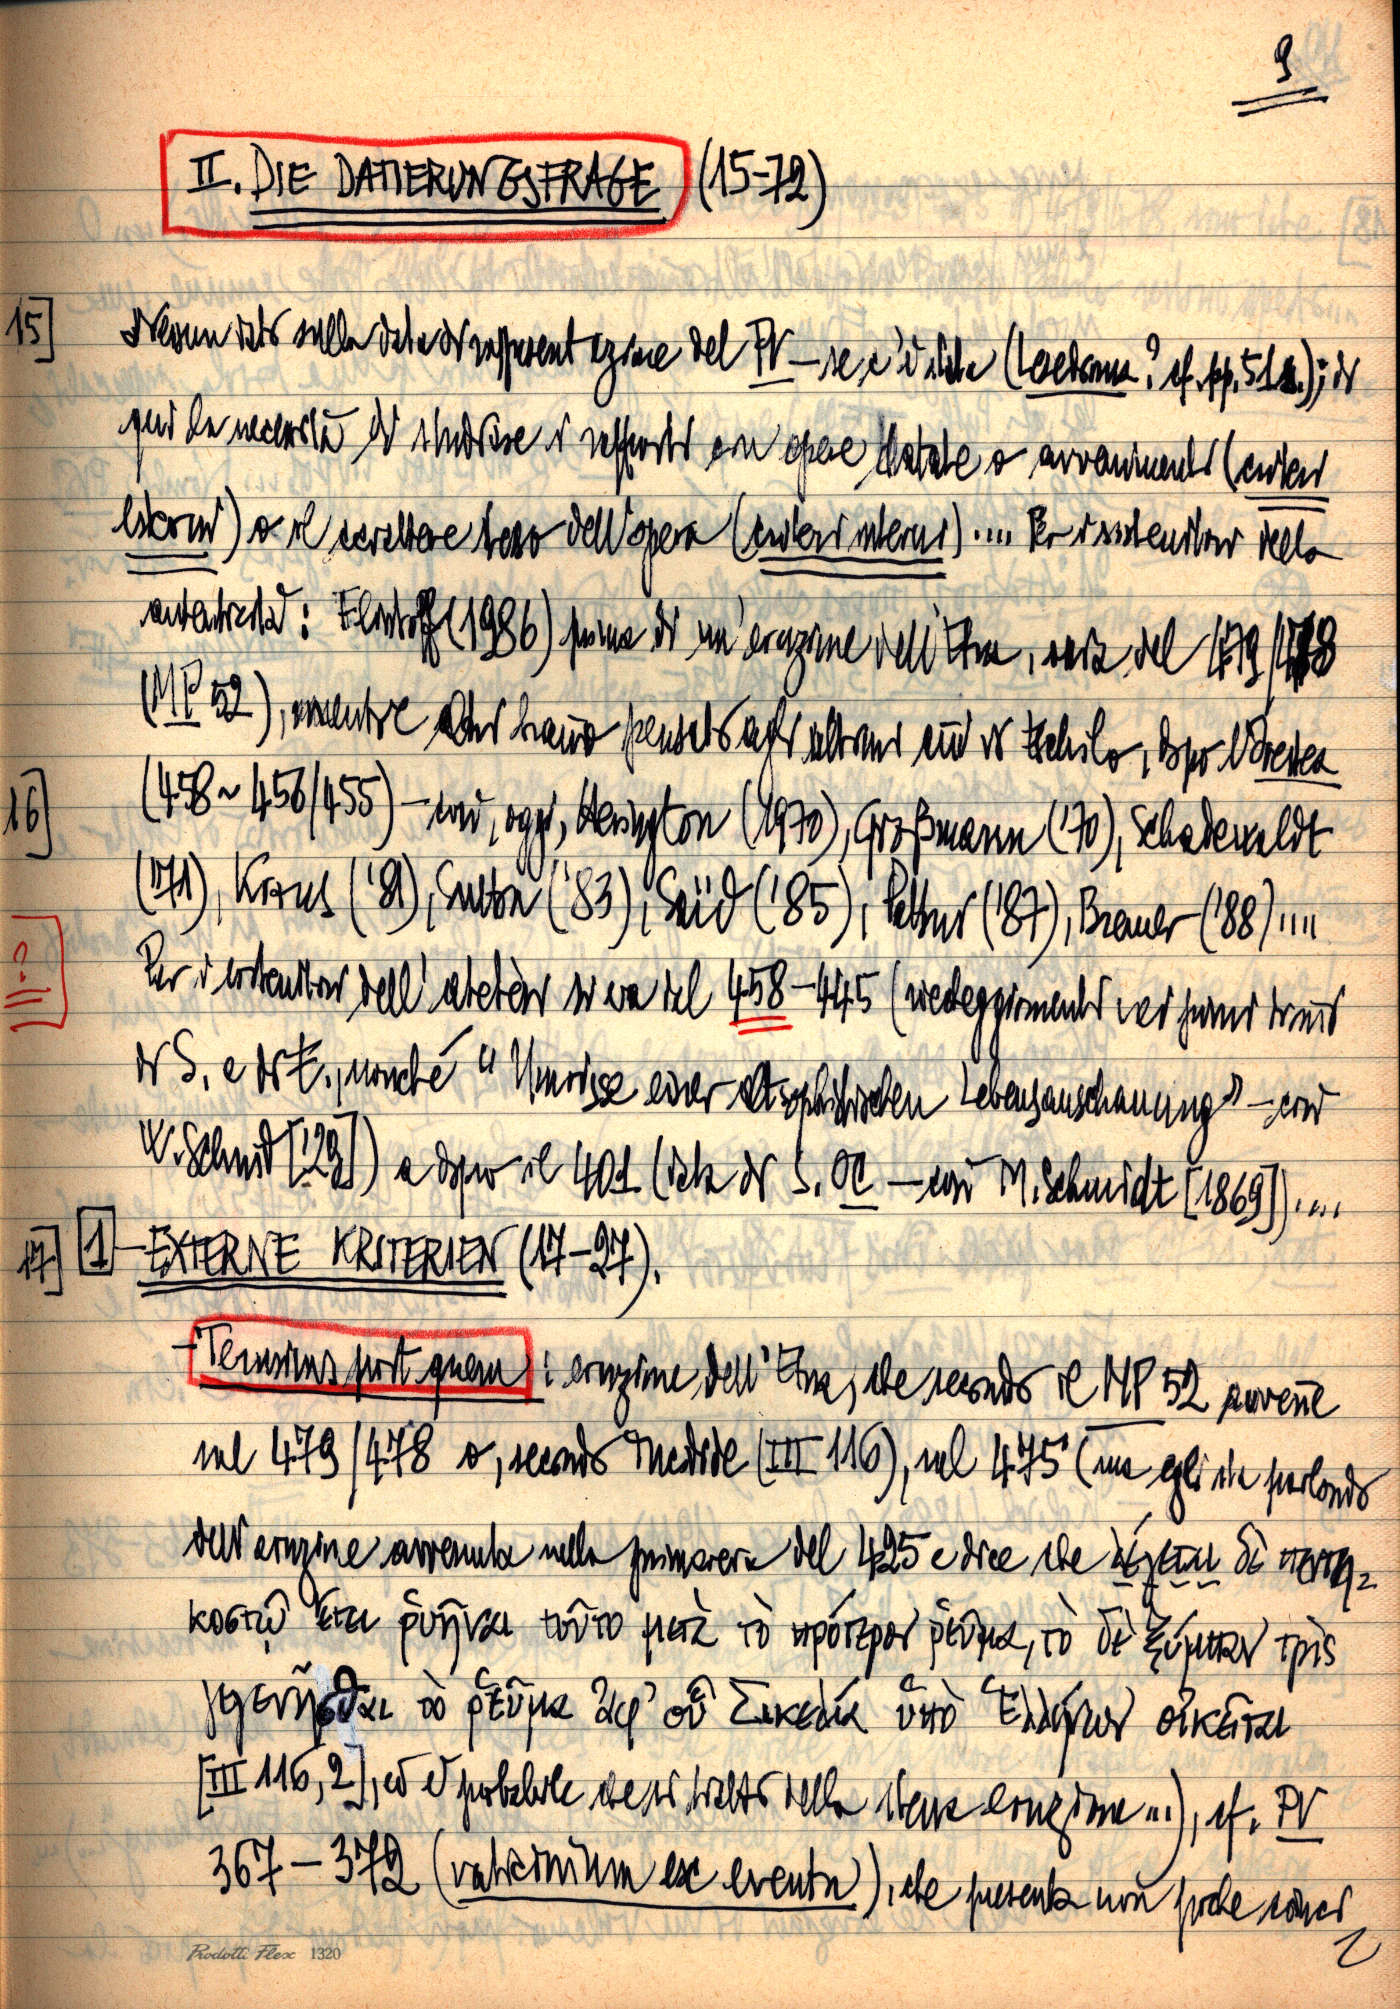 9
II. DIE DATIERUNGSFRAGE (15-72)
15] Nessun dato sulla data di rappresentazione del PV – se c'è stata (Lesedrama? cf. pp. 51s.); di
qui la necessità di studiare i rapporti con opere datate o avvenimenti (criteri
esterni) o il carattere stesso dell'opera (criteri interni).... Per i sostenitori della
autenticità: Flintoff (1986) prima di un'eruzione dell'Etna, ossia del 479/478
(MP 52), mentre altri hanno pensato agli ultimi anni di Eschilo, dopo l'Orestea
16] (458 ~ 456/455) – così, oggi, Herington (1970), Großmann ('70), Schadewaldt
('71), Kraus ('81), Sutton ('83), Saïd ('85), Pattoni ('87), Bremer ('88)....
? Per i sostenitori dell'atetèsi si va dal 458 – 445 (riecheggiamenti nei primi drammi
di S. e di E., nonché “Umrisse einer altsophistischen Lebensanschauung” – così
W. Schmid ['29]) a dopo il 401 (data di S. OC – così M. Schmidt [1869])....
17] 1 – EXTERNE KRITERIEN (17-27).
– Terminus post quem: eruzione dell'Etna, che secondo il MP 52 avvenne
nel 479/478 o, secondo Tucidide (III 116), nel 475 (ma egli sta parlando
dell'eruzione avvenuta nella primavera del 425 e dice che λέγεται δὲ πεντη-
κοστῷ ἔτει ῥυῆναι τοῦτο μετὰ τὸ πρότερον ῥεῦμα, τὸ δὲ ξύμπαν τρὶς
γεγενῆσθαι τὸ ῥεῦμα ἀφ' οὗ Σικελία ὑπὸ Ἑλλήνων οἰκεῖται
[III 116,2], ed è probabile che si tratti della stessa eruzione...), cf. PV
367 – 372 (vaticinium ex eventu), che presenta non poche
Prodotti Flex 1320